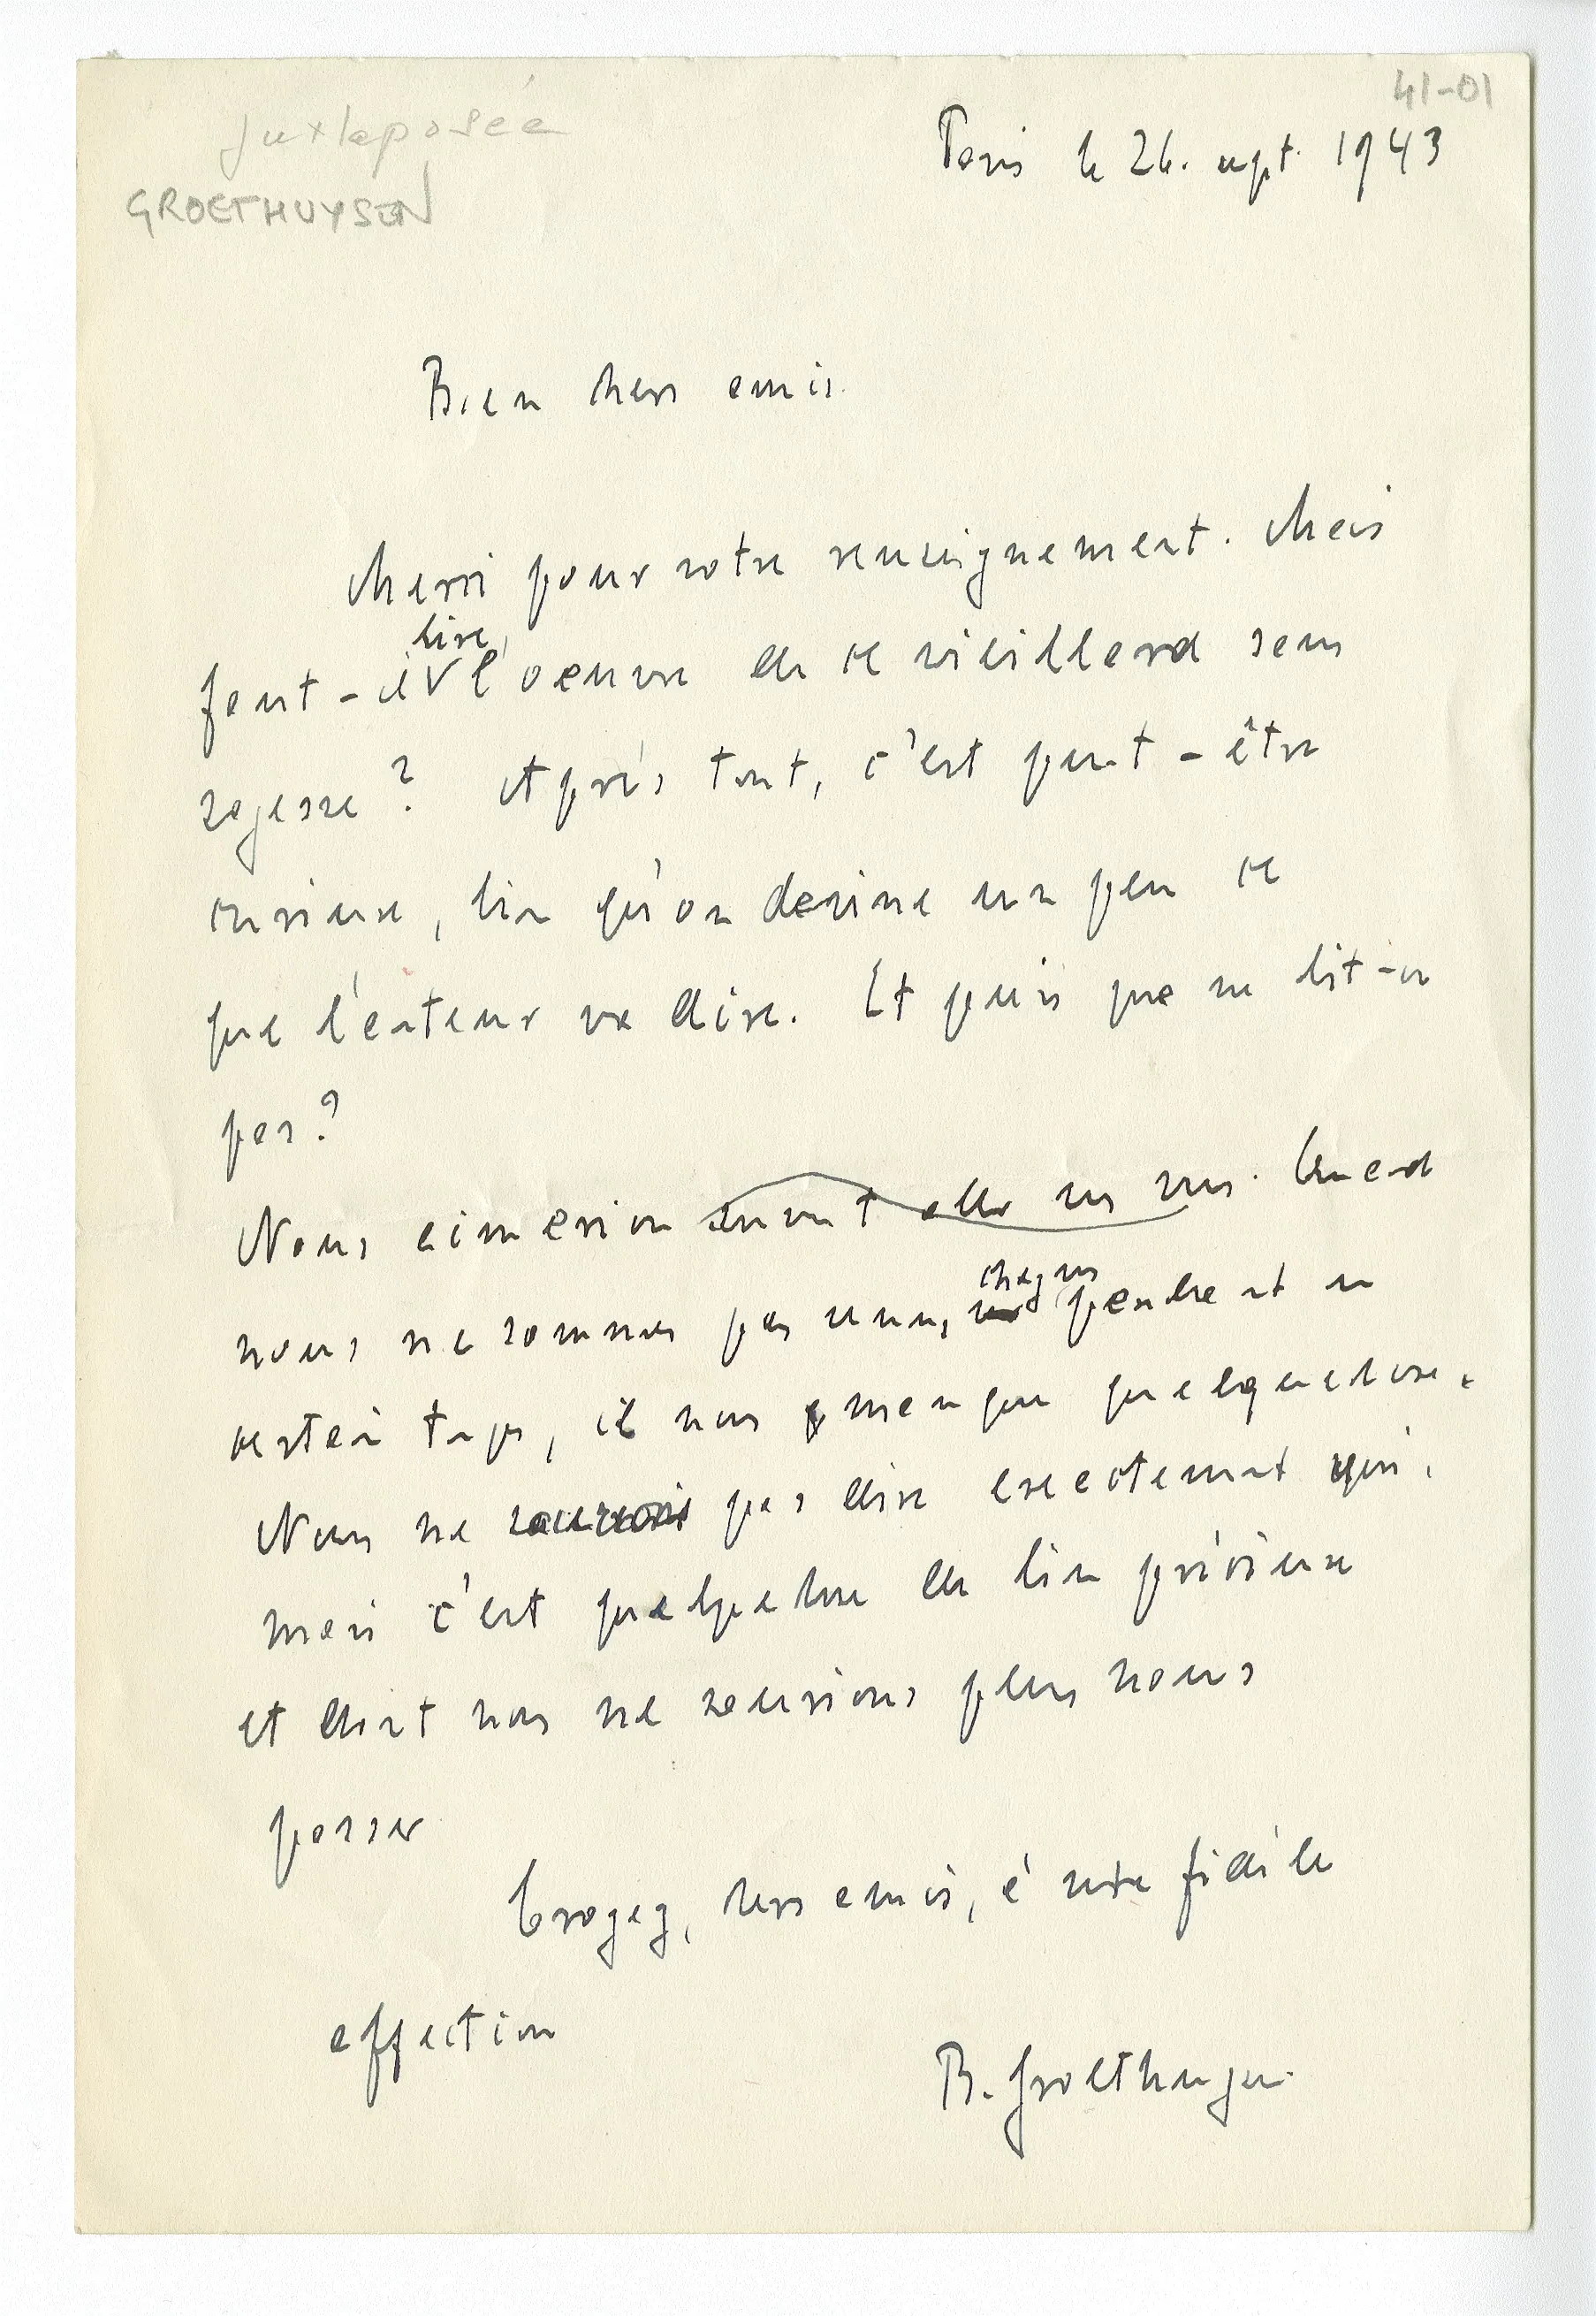 41-01
juxtaposée
GROETHUYSEN
Paris le 26. sept. 1943
Bien chers amis.
Merci pour votre renseignement. Mais
faut-il lire l'oeuvre de ce vieillard sans
sagesse? Après tout, c'est peut-être
curieux, bien qu'on devine un peu ce
que l'auteur va dire. Et puis que ne lit-on
pas?
Nous aimerions aller vous voir souvent. Quand
nous ne sommes pas venus chez vous pendant un
certain temps, il nous manque quelquechose.
Nous ne saurions pas dire exactement quoi,
mais c'est quelquechose de bien précieux
et dont nous ne saurions plus nous
passer
Croyez, chers amis, à notre fidèle
affection
B. Groethuysen